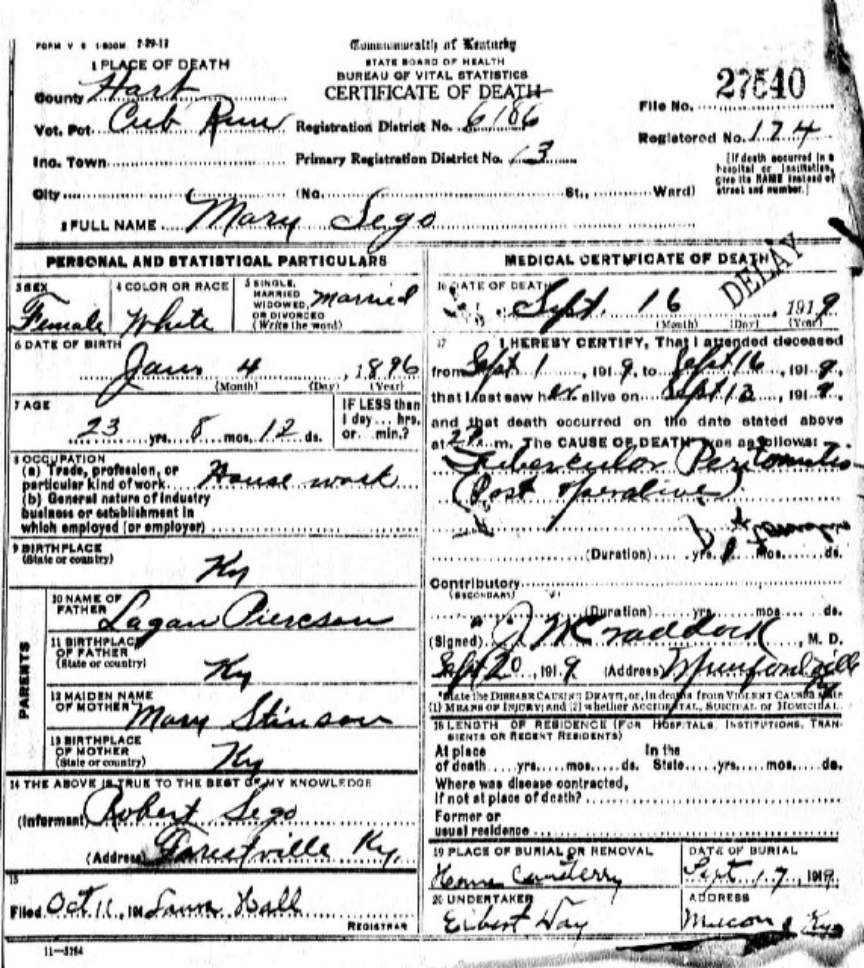 FORM V S 1-500M 7-29-13
Commonwealth of Kentucky
STATE BOARD OF HEALTH
BUREAU OF VITAL STATISTICS
CERTIFICATE OF DEATH
1 PLACE OF DEATH
County Hart
Vot. Pct. Cub Run Registration District No. 6186
Inc. Town Primary Registration District No. 13
City (No. St., Ward)
File No. 27540
Registered No. 174
[If death occurred in a
hospital or institution,
give its NAME instead of
street and number.]
2 FULL NAME Mary Sego
PERSONAL AND STATISTICAL PARTICULARS
3 SEX Female
4 COLOR OR RACE White
5 SINGLE,
MARRIED
WIDOWED,
OR DIVORCED
(Write the word) Married
6 DATE OF BIRTH
Jan 4, 1896
(Month) (Day) (Year)
7 AGE
23 yrs. 8 mos. 12 ds.
IF LESS than
1 day ... hrs.
or ... min.?
8 OCCUPATION
(a) Trade, profession, or
particular kind of work House work
(b) General nature of industry
business or establishment in
which employed (or employer)
9 BIRTHPLACE
(State or country) Ky
PARENTS
10 NAME OF
FATHER Lagan Piercson
11 BIRTHPLACE
OF FATHER
(State or country) Ky
12 MAIDEN NAME
OF MOTHER Mary Stinson
13 BIRTHPLACE
OF MOTHER
(State or country) Ky
14 THE ABOVE IS TRUE TO THE BEST OF MY KNOWLEDGE
(Informant) Robert Sego
(Address) Forestville Ky.
15
Filed Oct 11, 191 Laura Hall
REGISTRAR
11-3784
MEDICAL CERTIFICATE OF DEATH
DELAY
16 DATE OF DEATH
Sept. 16 1919
(Month) (Day) (Year)
17 I HEREBY CERTIFY, That I attended deceased
from Sept 1, 1919, to Sept 16, 1919,
that I last saw her alive on Sept 13, 1919,
and that death occurred on the date stated above
at m. The CAUSE OF DEATH was as follows:
Tubercular Peritonitis
(Post operative)
(Duration) yrs. mos. ds.
Contributory
(SECONDARY)
(Duration) yrs. mos. ds.
(Signed) J Craddock, M. D.
Sept 20, 1919 (Address) Munfordville
Ky
*State the DISEASE CAUSING DEATH, or, in deaths from VIOLENT CAUSES state
(1) MEANS OF INJURY; and (2) whether ACCIDENTAL, SUICIDAL or HOMICIDAL.
18 LENGTH OF RESIDENCE (FOR HOSPITALS, INSTITUTIONS, TRAN-
SIENTS OR RECENT RESIDENTS)
At place In the
of death yrs. mos. ds. State yrs. mos. ds.
Where was disease contracted,
if not at place of death?
Former or
usual residence
19 PLACE OF BURIAL OR REMOVAL
Home Cemetery
DATE OF BURIAL
Sept. 17, 1919
20 UNDERTAKER
Elbert Day
ADDRESS
Ky